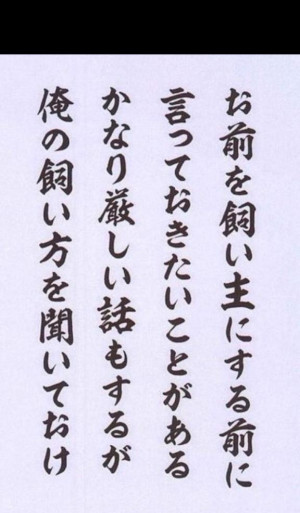 お前を飼い主にする前に
言っておきたいことがある
かなり厳しい話もするが
俺の飼い方を聞いておけ